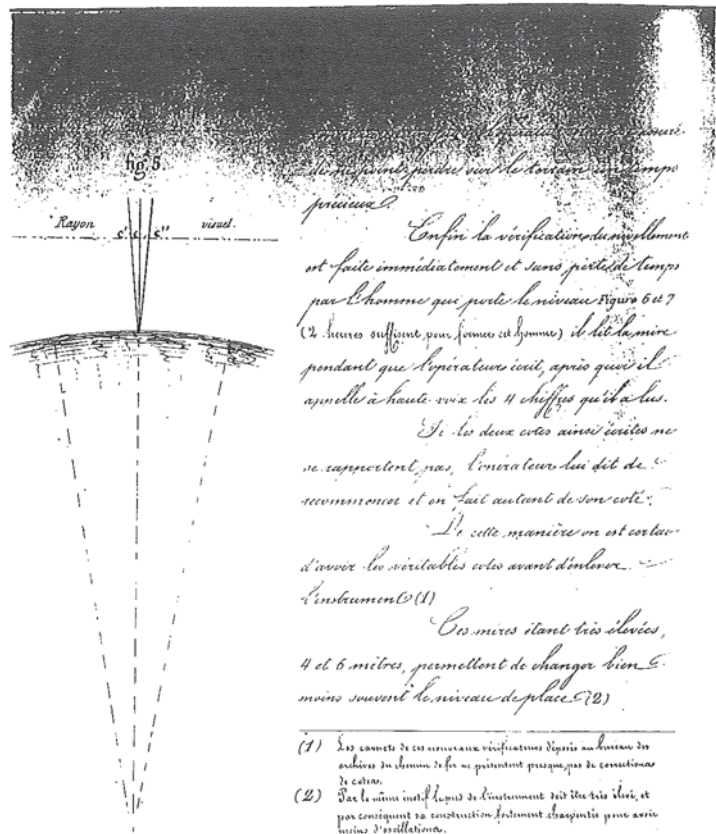 fig. 5.
Rayon visuel.
c' c c''
de ne point perdre sur le terrain un temps
précieux.
Enfin la vérification du nivellement
est faite immédiatement et sans perte de temps
par l'homme qui porte le niveau Figure 6 et 7
(2 heures suffisent pour former cet homme) il lit la mire
pendant que l'opérateur écrit, après quoi il
appelle à haute voix les 4 chiffres qu'il a lus.
Si les deux cotes ainsi écrites ne
se rapportent pas, l'opérateur lui dit de
recommencer et en fait autant de son coté.
De cette manière on est certain
d'avoir les véritables cotes avant d'enlever
l'instrument (1)
Ces mires étant très élevées,
4 et 6 mètres, permettent de changer bien
moins souvent le niveau de place (2)
(1) Les carnets de ces nouveaux vérificateurs déposés au bureau des
archives du chemin de fer ne présentent presque pas de corrections
de cotes.
(2) Par le même motif le pied de l'instrument doit être très élevé, et
par conséquent sa construction fortement charpentée pour avoir
moins d'oscillations.